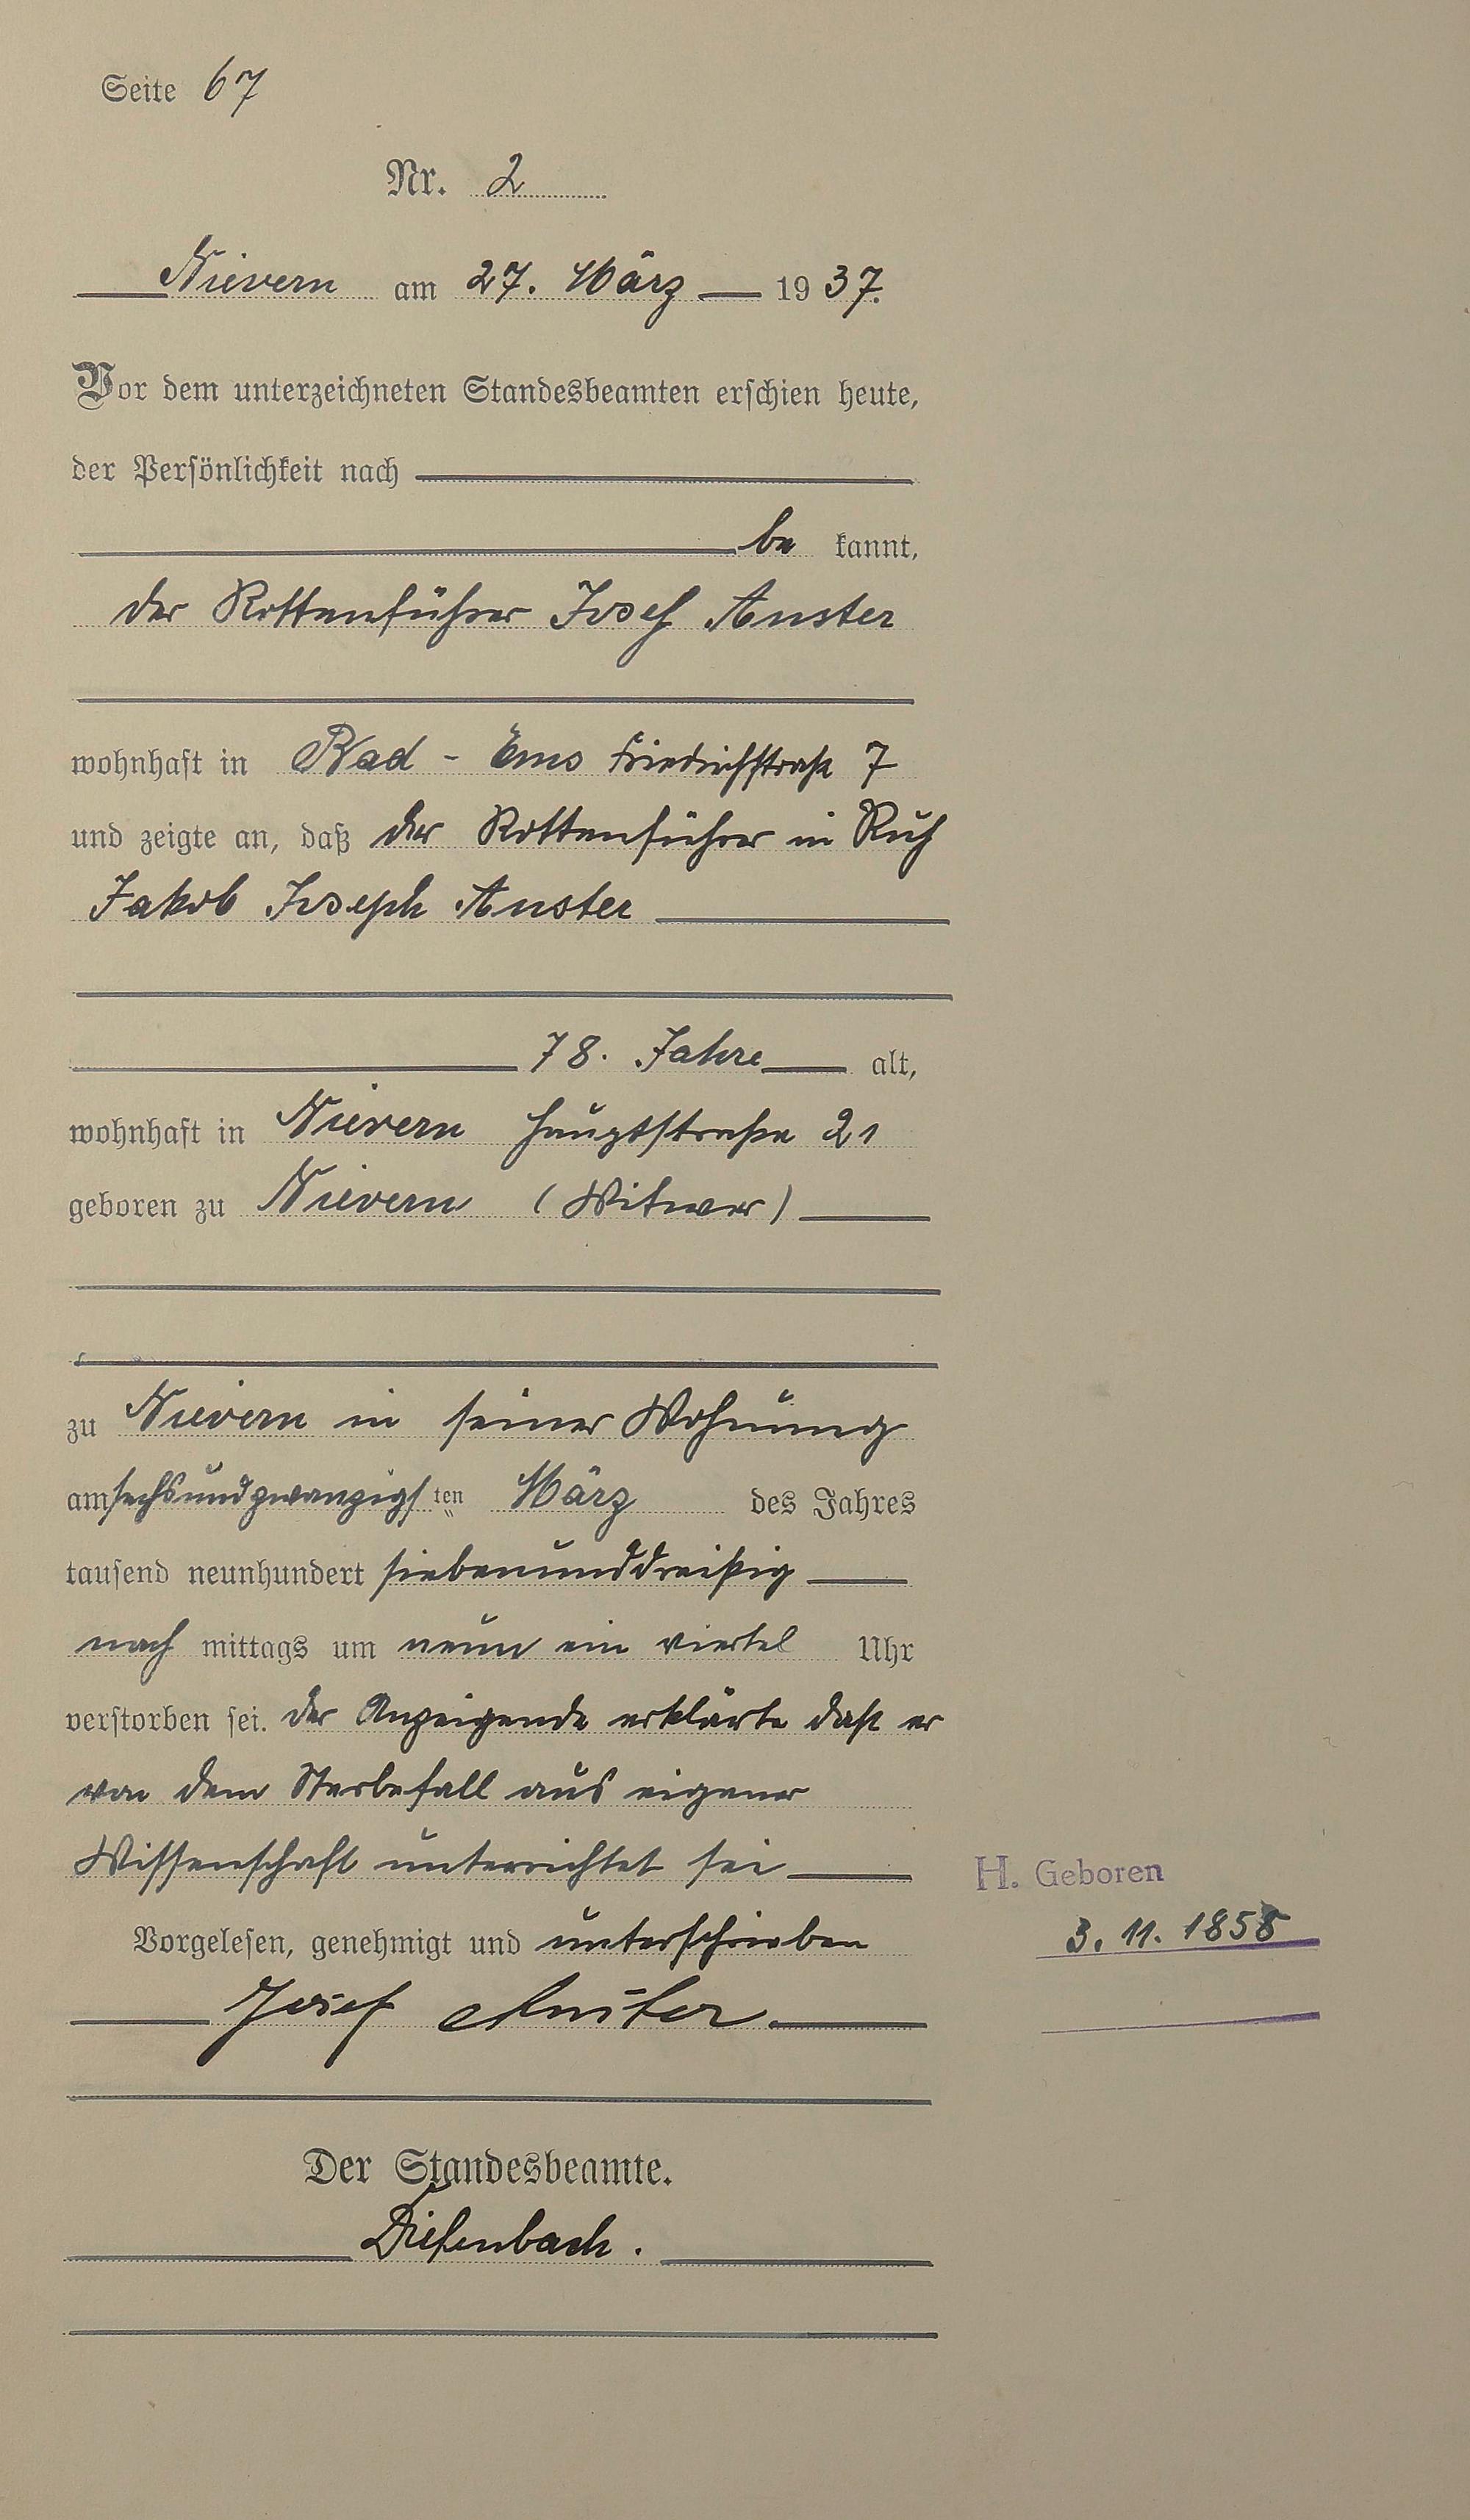 Seite 67
Nr. 2
Nievern am 27. März 1937.
Vor dem unterzeichneten Standesbeamten erschien heute,
der Persönlichkeit nach
be kannt,
der Rottenführer Josef Anster
wohnhaft in Bad - Ems Friedrichstraße 7
und zeigte an, daß der Rottenführer in Ruh
Jakob Joseph Anster
78. Jahre alt,
wohnhaft in Nievern Hauptstraße 21
geboren zu Nievern (Witwer)
zu Nievern in seiner Wohnung
am sechsundzwanzigsten März des Jahres
tausend neunhundert siebenunddreißig
nach mittags um neun ein viertel Uhr
verstorben sei. Der Anzeigende erklärte daß er
von dem Sterbefall aus eigener
Wissenschaft unterrichtet sei
H. Geboren
3. 11. 1858
Vorgelesen, genehmigt und unterschrieben
Josef Anster
Der Standesbeamte.
Diefenbach.